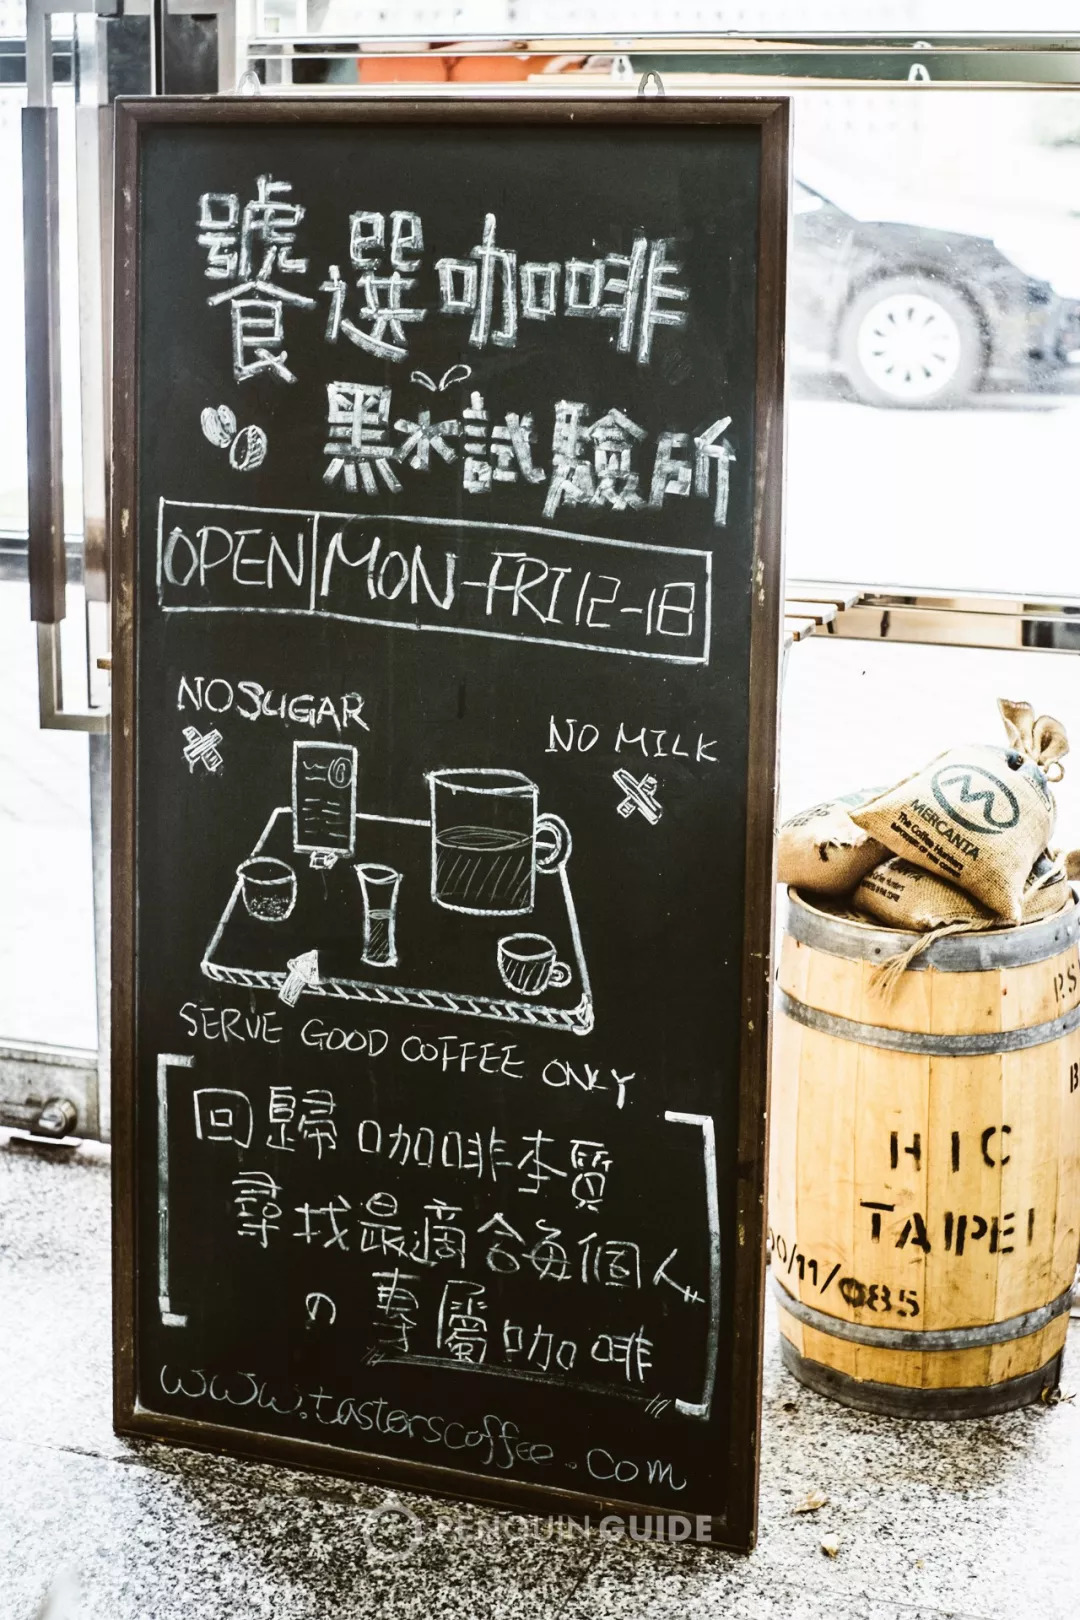 饕選咖啡
黑水試驗所
OPEN MON-FRI 12-18
NO SUGAR
NO MILK
SERVE GOOD COFFEE ONLY
回歸咖啡本質
尋找最適合每個人
の專屬咖啡
www.tasterscoffee.com
MERCANTA
The Coffee Hunters
HIC
TAIPEI
00/11/085
PENGUIN GUIDE